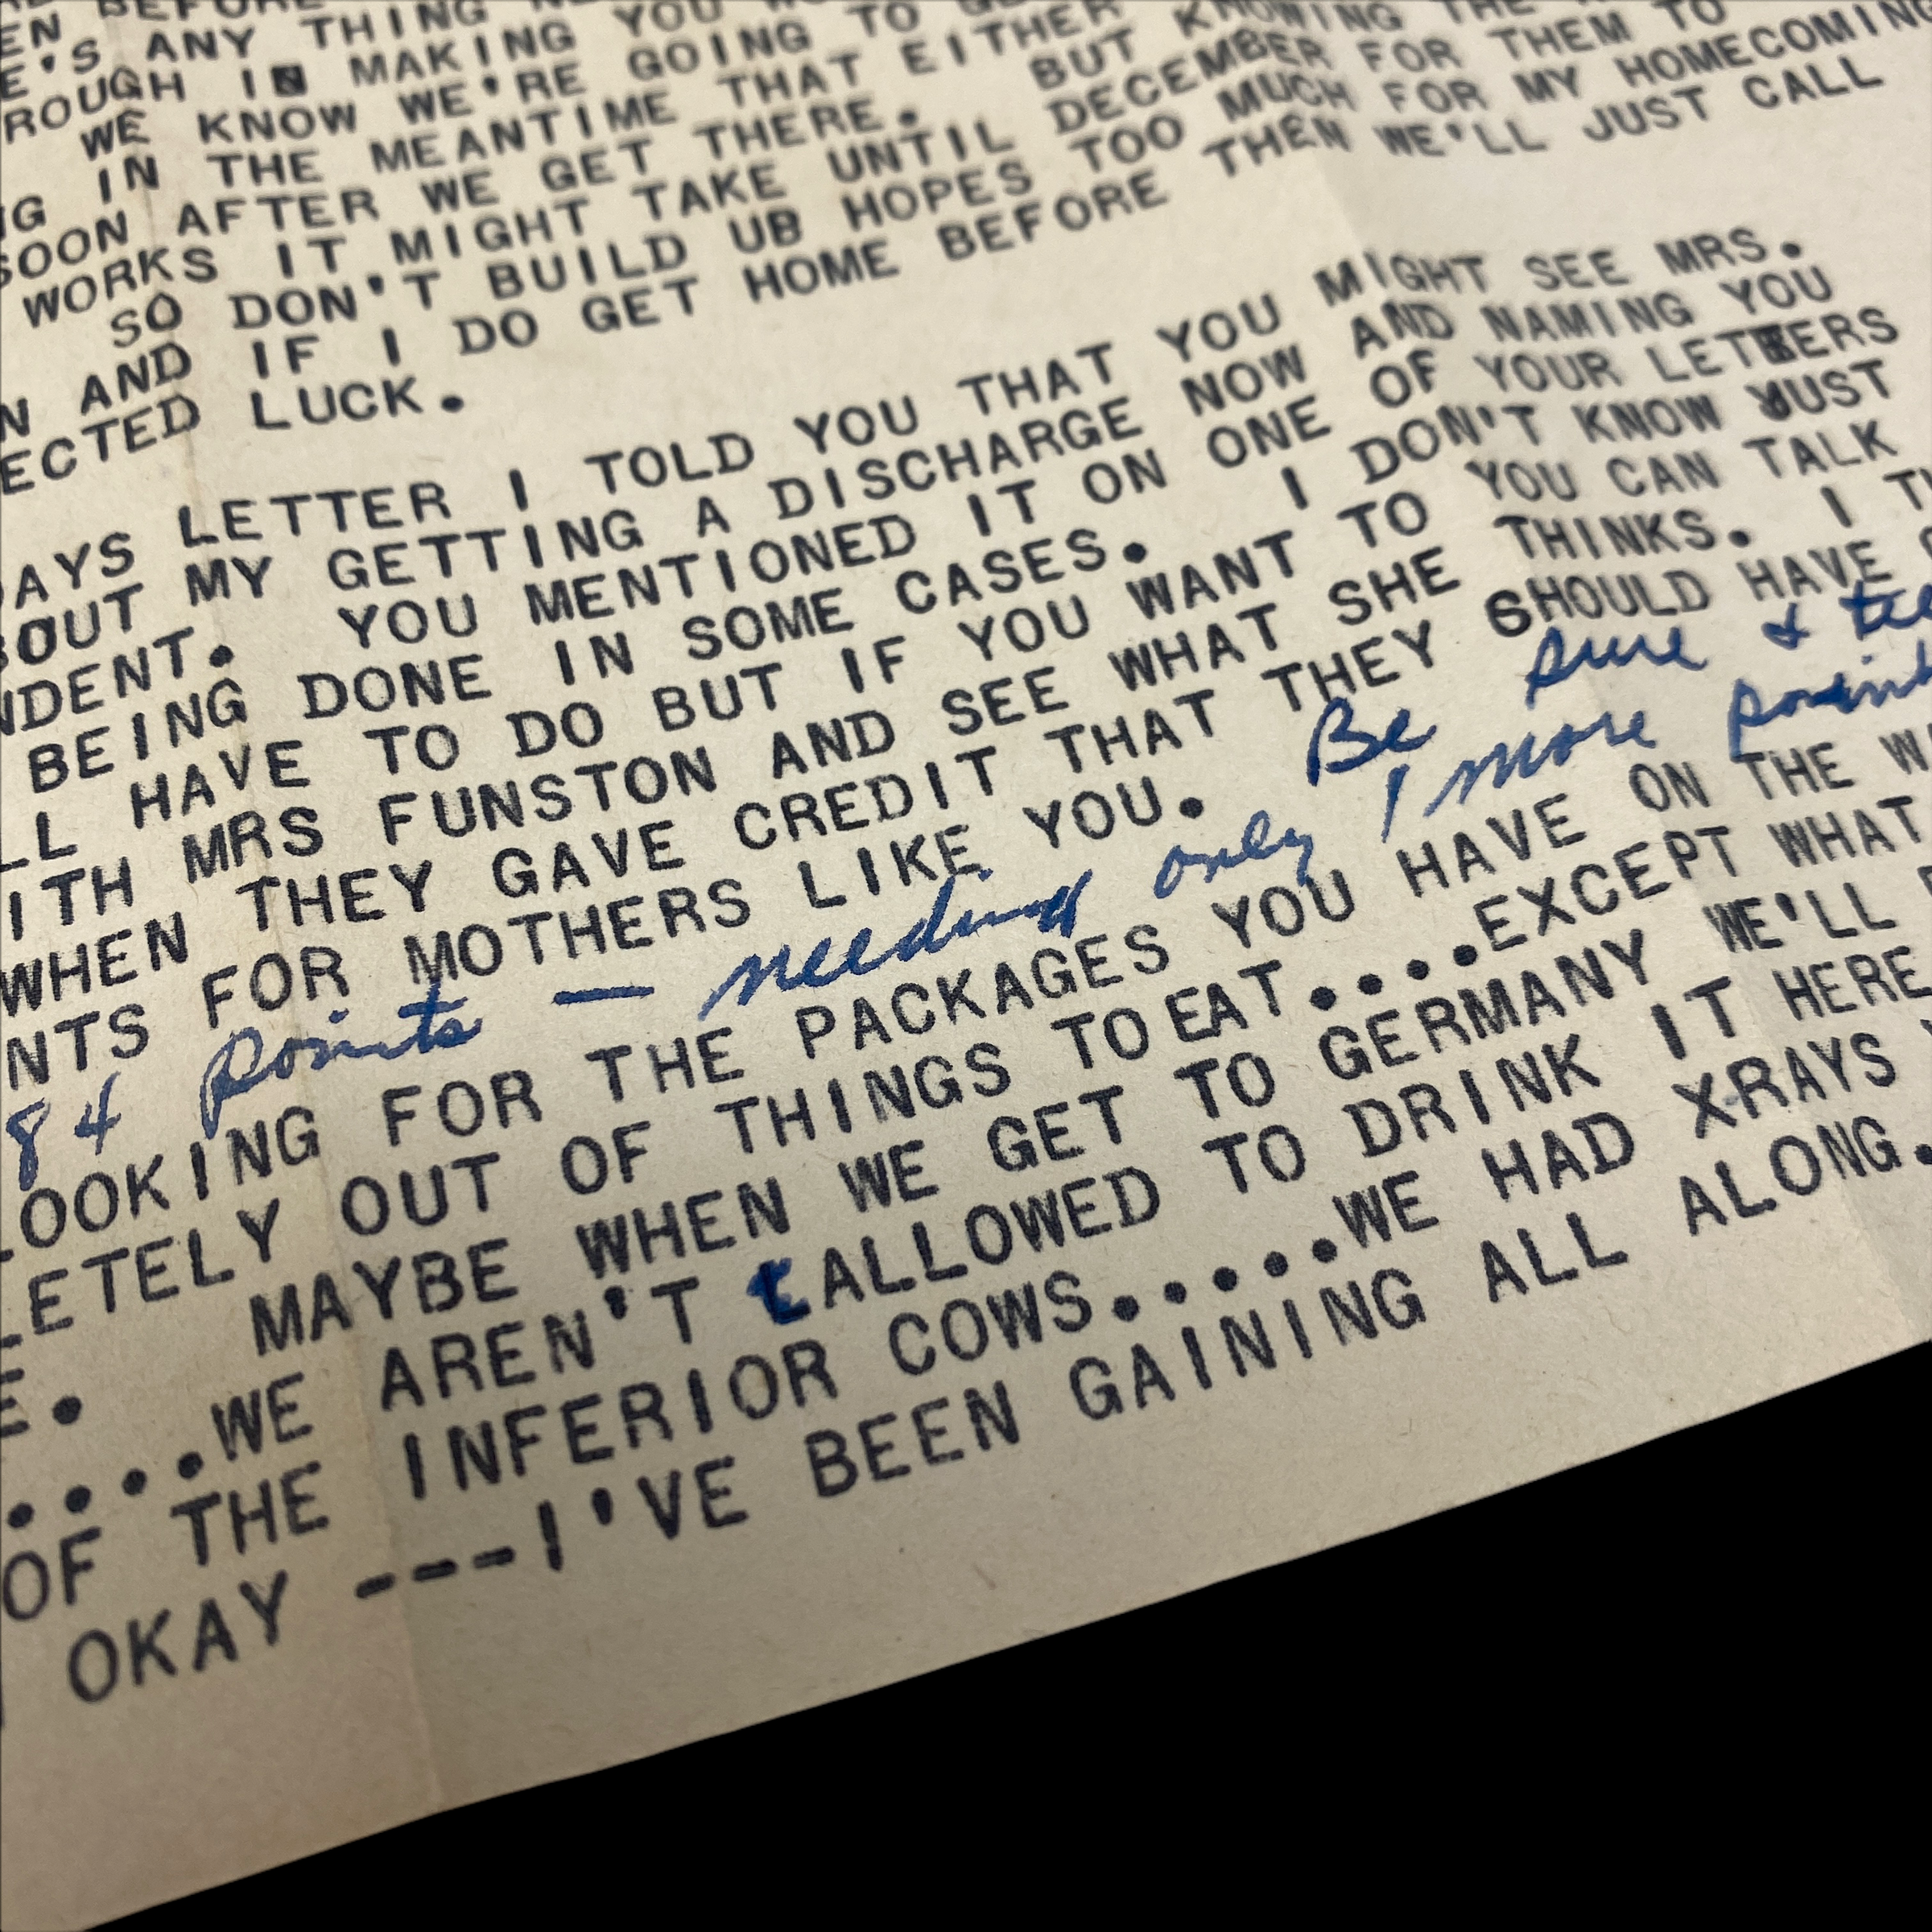 E'S ANY THING
ROUGH IN MAKING YOU
WE KNOW WE'RE GOING TO
NG IN THE MEANTIME THAT EITHER
SOON AFTER WE GET THERE. BUT KNOWING THE
WORKS IT MIGHT TAKE UNTIL DECEMBER FOR THEM TO
SO DON'T BUILD UB HOPES TOO MUCH FOR MY HOMECOMING
N AND IF I DO GET HOME BEFORE THEN WE'LL JUST CALL
ECTED LUCK.
AYS LETTER I TOLD YOU THAT YOU MIGHT SEE MRS.
BOUT MY GETTING A DISCHARGE NOW AND NAMING YOU
NDENT. YOU MENTIONED IT ON ONE OF YOUR LETTERS
BEING DONE IN SOME CASES. I DON'T KNOW JUST
LL HAVE TO DO BUT IF YOU WANT TO YOU CAN TALK
ITH MRS FUNSTON AND SEE WHAT SHE THINKS. I T
WHEN THEY GAVE CREDIT THAT THEY SHOULD HAVE
NTS FOR MOTHERS LIKE YOU. Be sure &
84 points — needing only 1 more point
LOOKING FOR THE PACKAGES YOU HAVE ON THE W
LETELY OUT OF THINGS TO EAT....EXCEPT WHAT
E. MAYBE WHEN WE GET TO GERMANY WE'LL
.....WE AREN'T ALLOWED TO DRINK IT HERE
OF THE INFERIOR COWS.....WE HAD XRAYS
OKAY ---I'VE BEEN GAINING ALL ALONG.